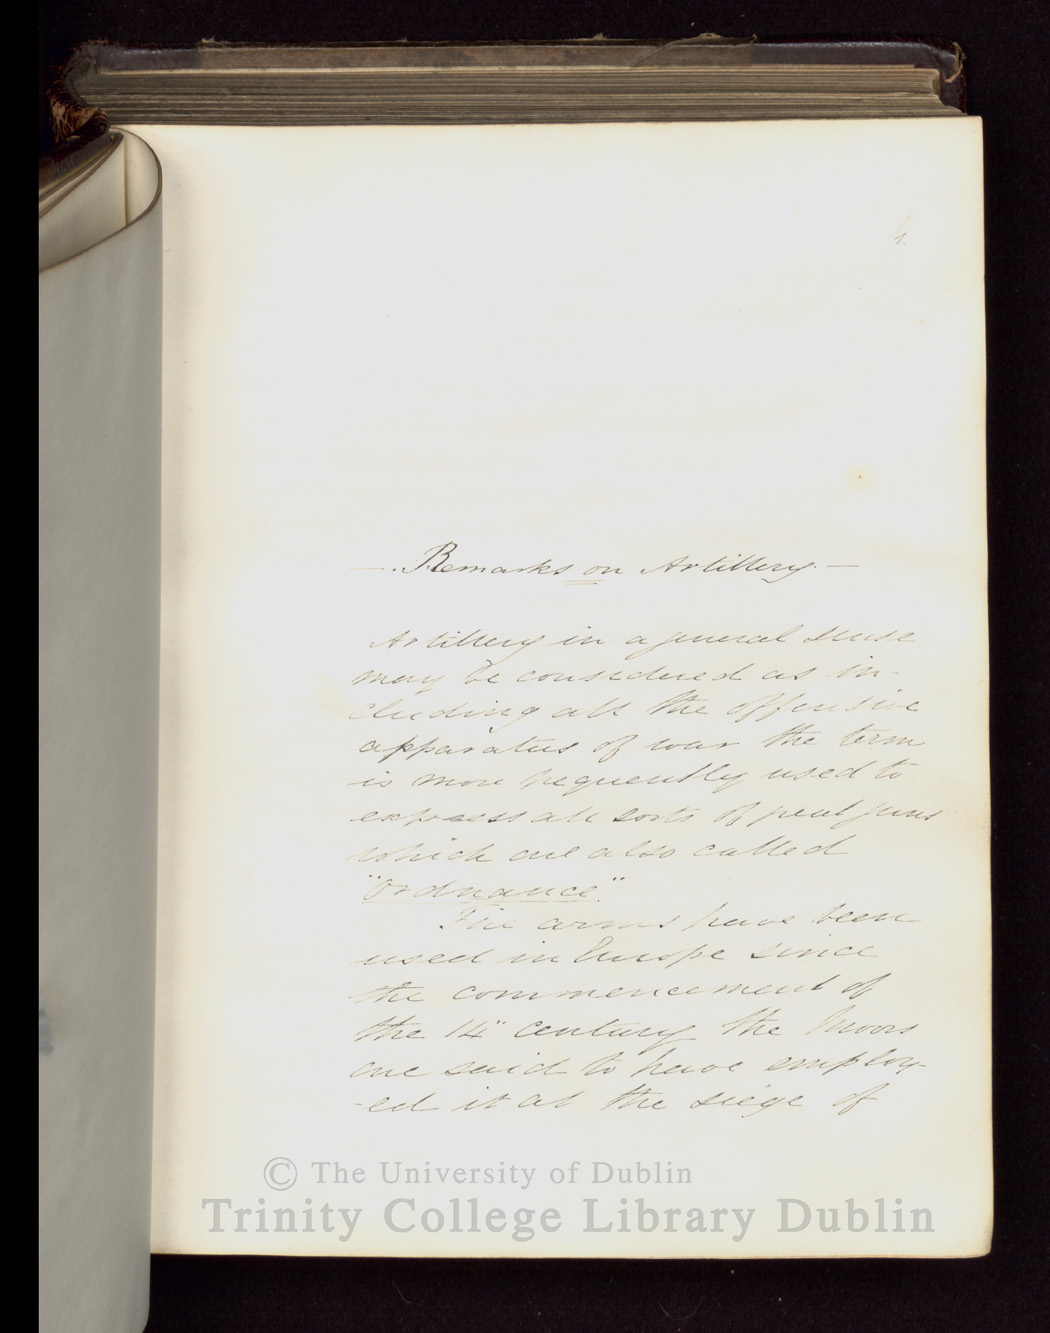 4.
— . Remarks on Artillery. —
Artillery in a general sense
may be considered as in-
cluding all the offensive
apparatus of war the term
is more frequently used to
express all sorts of great guns
which are also called
"Ordnance".
Fire arms have been
used in Europe since
the commencement of
the 14" century the Moors
are said to have employ-
-ed it at the siege of
© The University of Dublin
Trinity College Library Dublin